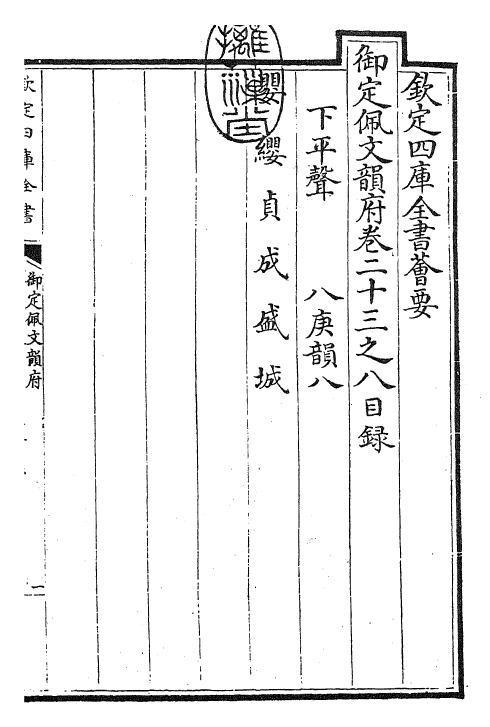 欽定四庫全書薈要
御定佩文韻府卷二十三之八目録
下平聲 八庚韻八
纓 貞 成 盛 城
欽定四庫全書
御定佩文韻府
一